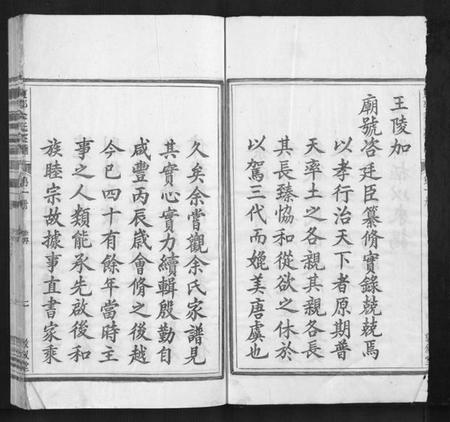 王陵加
廟號咨廷臣纂脩實錄兢兢焉
以孝行治天下者原期普
天率土之各親其親各長
其長臻恊和從欲之休於
以駕三代而媲美唐虞也
久矣余嘗觀余氏家譜見
其實心實力續輯殷勤自
咸豐丙辰歲會脩之後越
今巳四十有餘年當時主
事之人類能承先啟後和
族睦宗故據事直書家乘